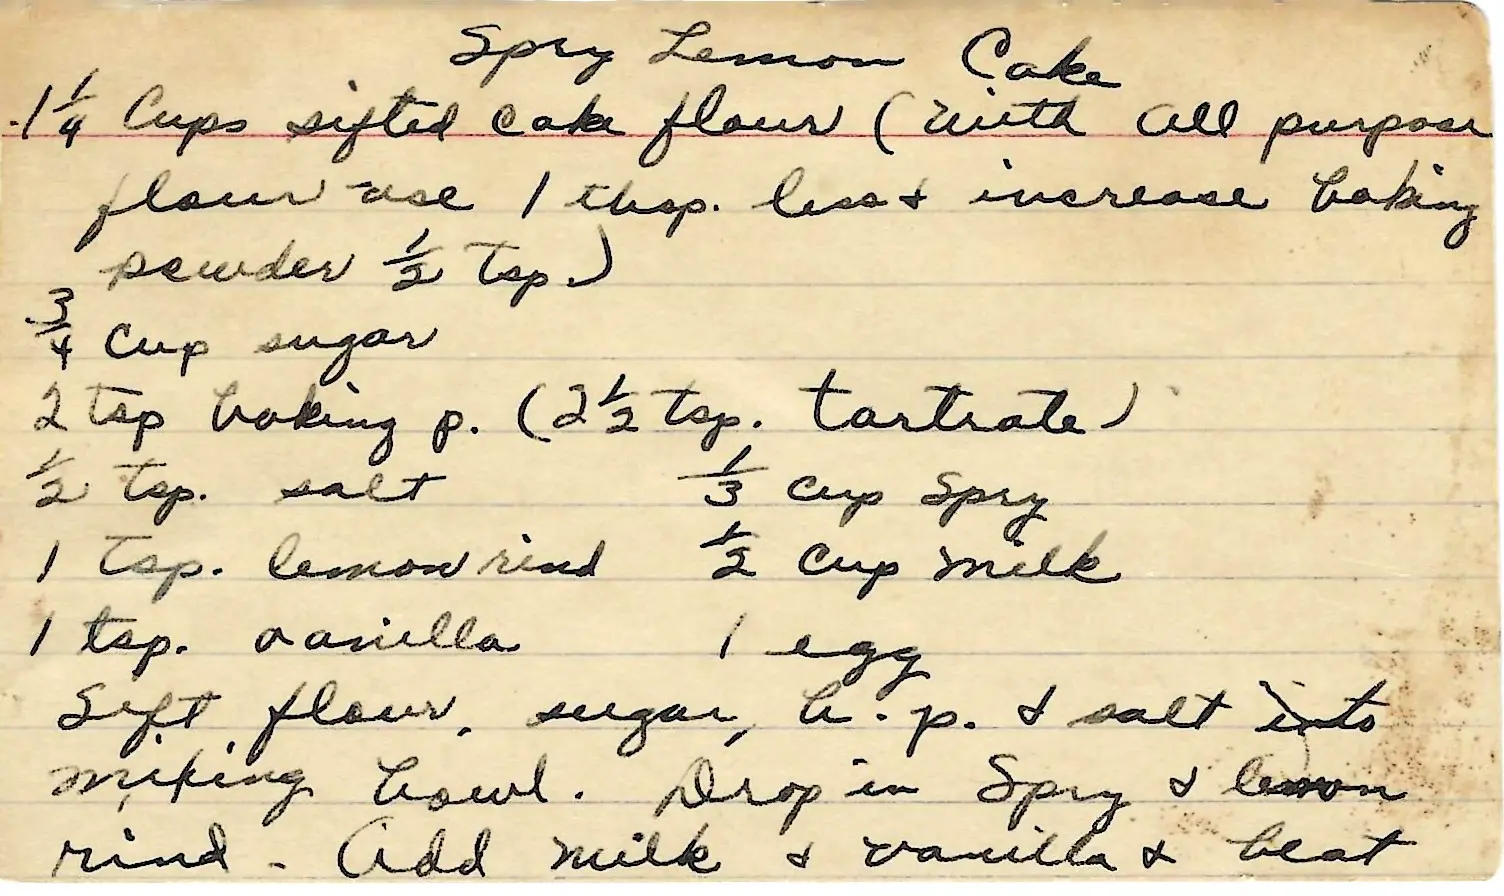 Spry Lemon Cake
1 1/4 Cups sifted cake flour (with all purpose
flour use 1 tbsp. less & increase baking
powder 1/2 tsp.)
3/4 cup sugar
2 tsp baking p. (2 1/2 tsp. tartrate)
1/2 tsp. salt 1/3 cup Spry
1 tsp. lemon rind 1/2 cup milk
1 tsp. vanilla 1 egg
Sift flour, sugar, b. p. & salt into
mixing bowl. Drop in Spry & lemon
rind - Add milk & vanilla & beat